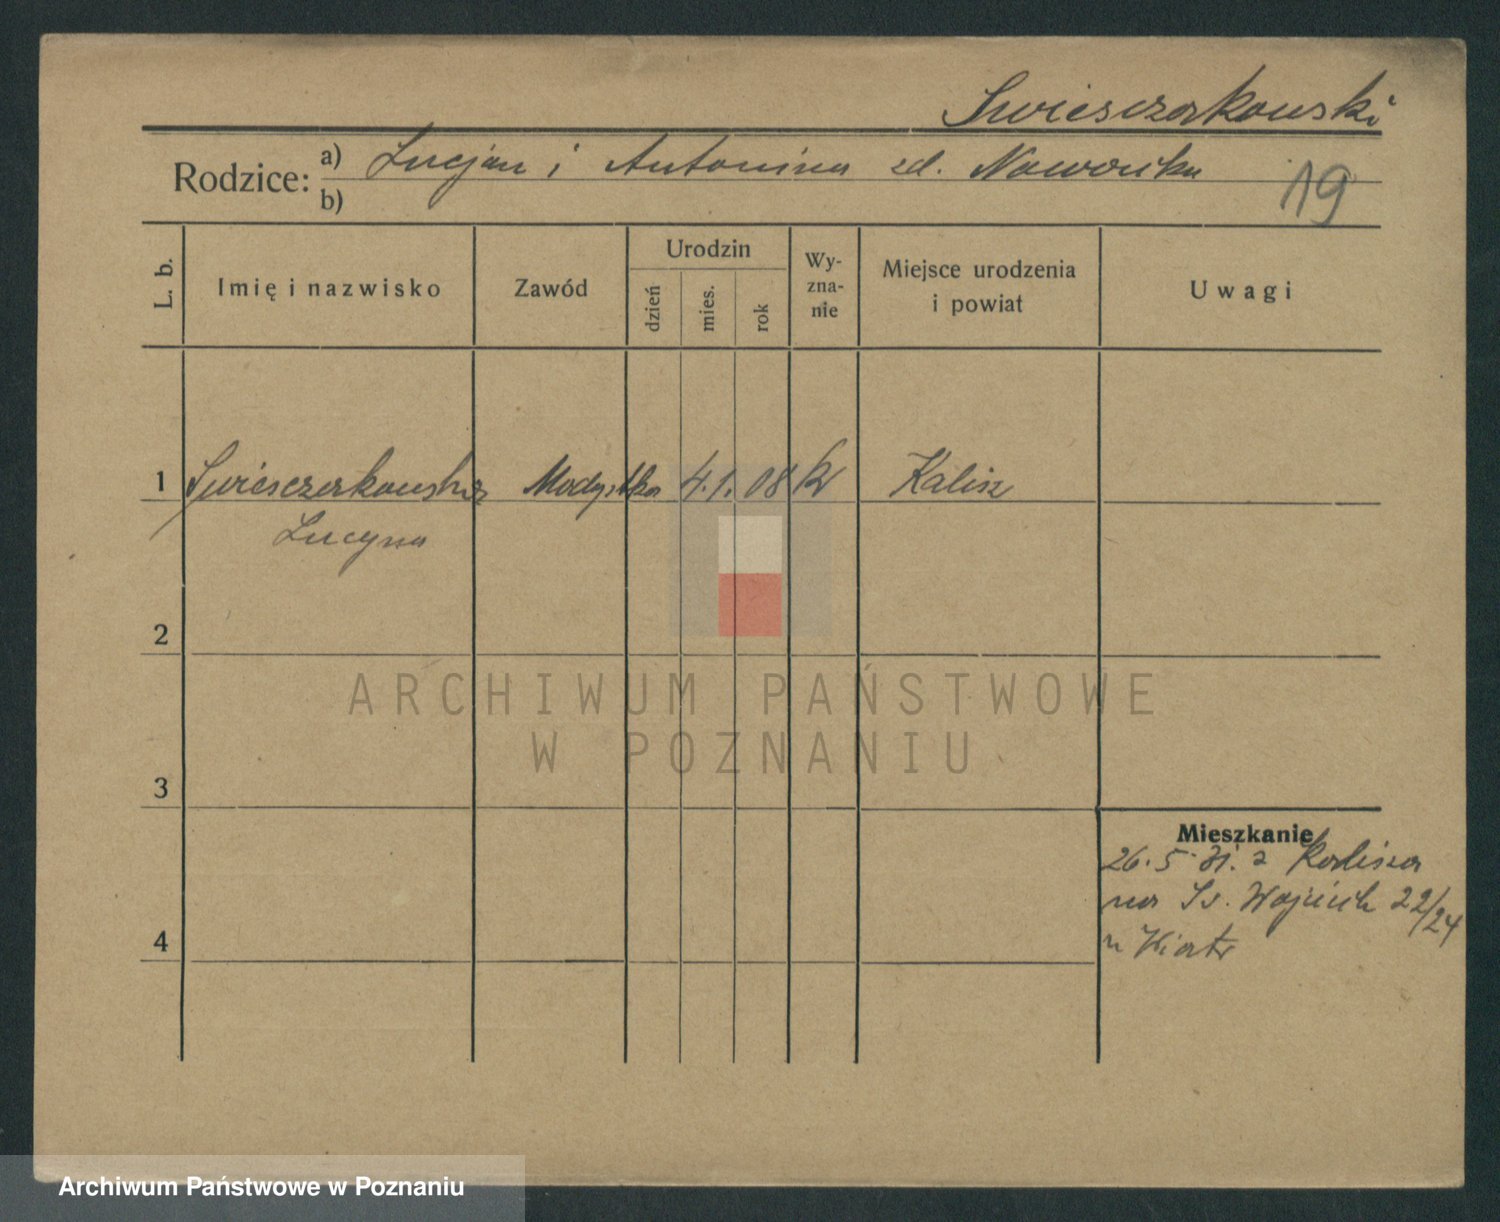 Swiesczakowski
Rodzice: a) Lucjan i Antonina zd. Nowonka
b)
19
L. b.
Imię i nazwisko
Zawód
Urodzin
dzień
mies.
rok
Wy-
zna-
nie
Miejsce urodzenia
i powiat
Uwagi
1 Swiesczakowska Modystka 4. 1. 08 Kalisz
Lucyna
2
3
4
Mieszkanie
26. 5. 31. z Kalisza
na Sv. Wojciech 22/24
ARCHIWUM PAŃSTWOWE
W POZNANIU
Archiwum Państwowe w Poznaniu